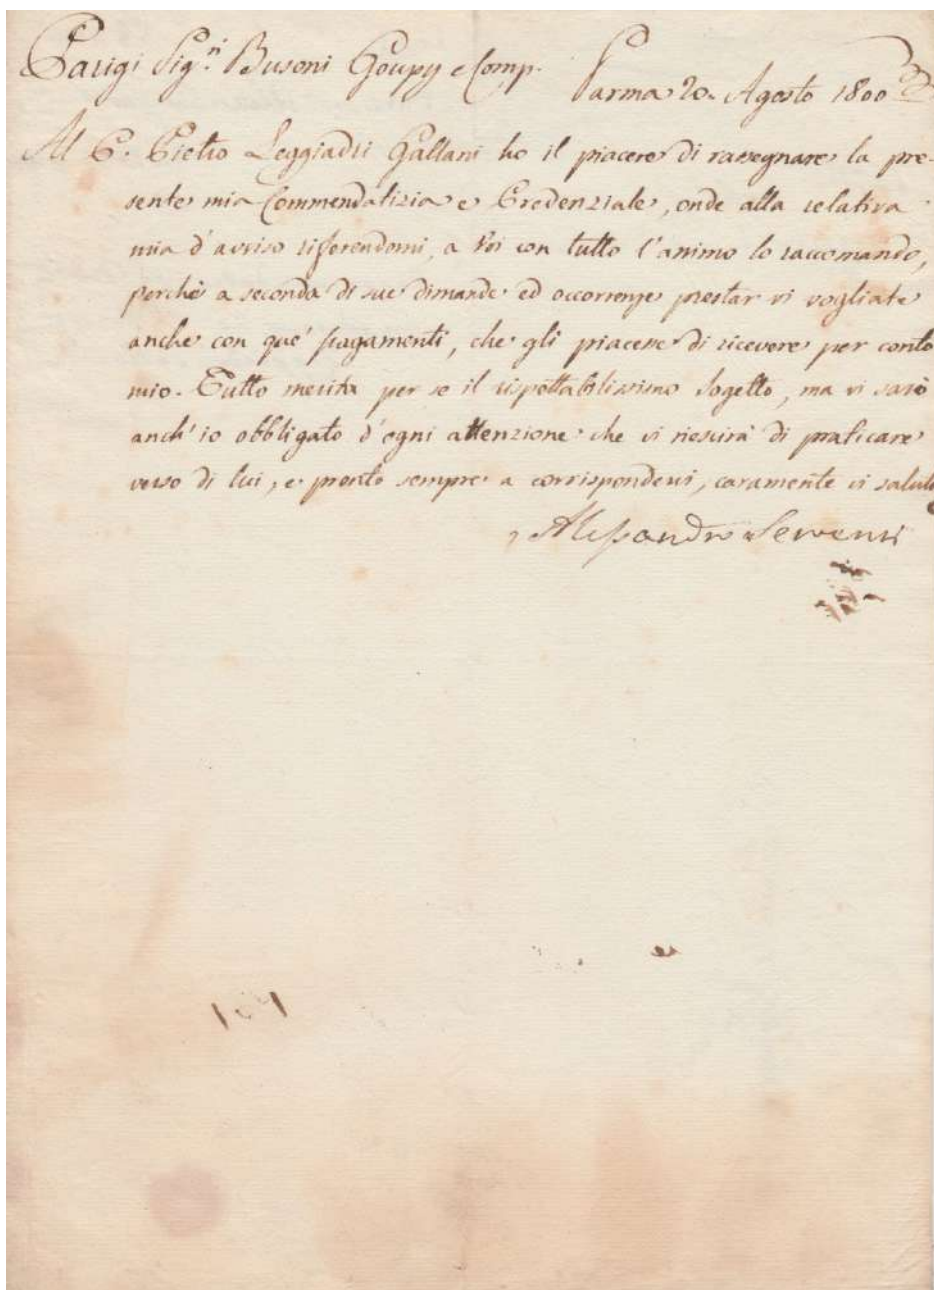 Parigi Sig.ri Busoni Goupy e Comp.
Parma 20. Agosto 1800
Al C. Pietro Leggiadri Gallani ho il piacere di rassegnare la pre-
sente mia Commendatizia e Credenziale, onde alla relativa
mia d'avviso riferendomi, a Voi con tutto l'animo lo raccomando,
perchè a seconda di sue dimande ed occorrenze prestar vi vogliate
anche con que' pagamenti, che gli piacesse di ricevere per conto
mio. Tutto merita per se il rispettabilissimo Sogetto, ma vi sarò
anch'io obbligato d'ogni attenzione che vi riescirà di praticare
verso di lui, e pronto sempre a corrispondervi, caramente vi saluto
Alessandro Serventi